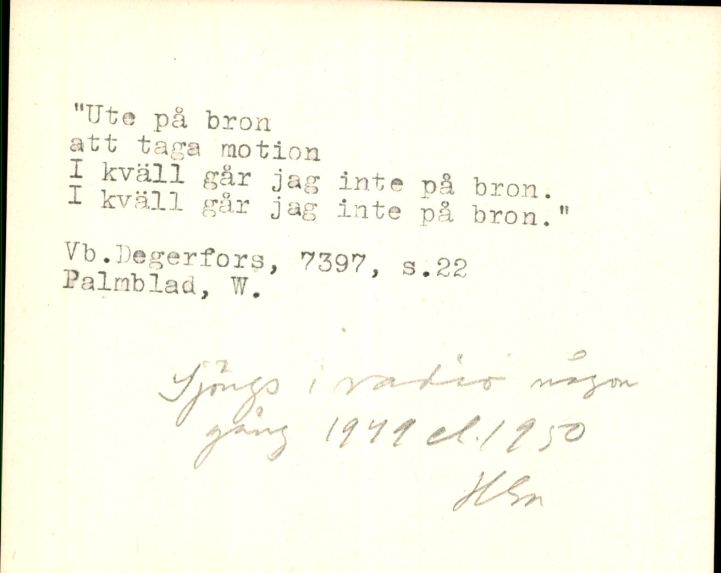 "Ute på bron
att taga motion
I kväll går jag inte på bron.
I kväll går jag inte på bron."
Vb.Degerfors, 7397, s.22
Palmblad, W.
Sjöngs i radio någon
gång 1949 el. 1950